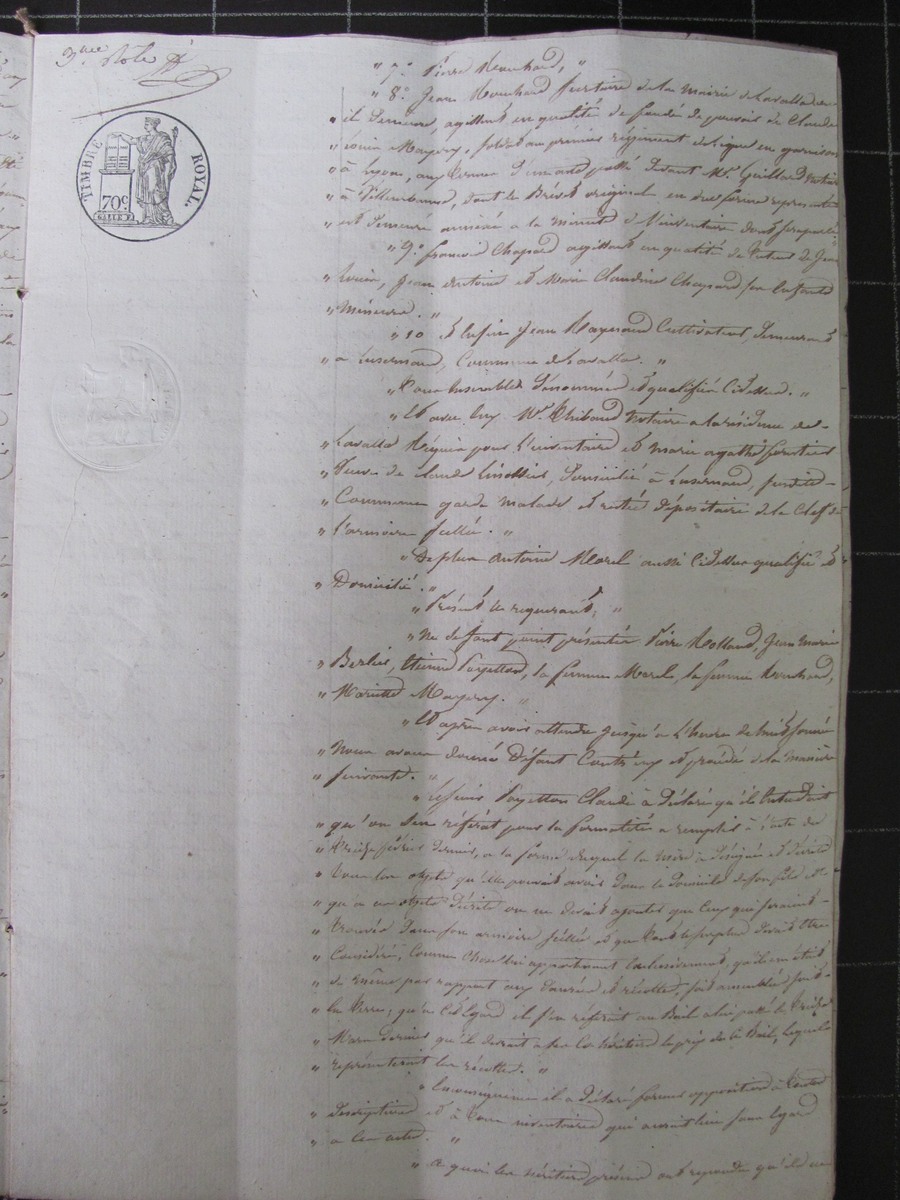 3me Rôle
TIMBRE ROYAL.
70c
" 7° Pierre Mouchard, "
" 8° Jean Mouchard Secrétaire de la Mairie de Lavalla
" il Demeure, agissant en qualité de fondé de pouvoir de Claude
" Louis Mayery, soldat au premier régiment de ligne en garnison
" à Lyon, aux termes d'un mandat passé devant Me Guillard Notaire
" à Villeurbanne, dont le Brévet original en due forme représenté
" est demeuré annéxé à la minute d'Inventaire dont
" 9° françois Chapard agissant en qualité de Tuteur de Jean
" Louis, Jean Antoine et Marie Claudine Chapard ses Enfants
" Mineurs. "
" 10 Et Enfin Jean Mayeraud Cultivateur, Demeurant
" à Luzernaud, Commune de Lavalla. "
" Tous Ensembles Dénommés et qualifiés Cidessus. "
" Et avec Eux Me Thibaud Notaire à la résidence de
" Lavalla Réquis pour L'inventaire Et Marie agathe
" Veuve de Claude Domicilié à Luzernaud,
" Commune garde malade et restée dépositaire de la Clef de
" l'armoire scellée. "
" De plus antoine Morel aussi Cidessus qualifié Et
" Domicilié. "
" Présents les requérants, "
" Ne se sont point présentés Pierre Rolland, Jean Marie
" Berlier, Etienne Payetton, la femme Morel, la femme Mouchard,
" Mariette Mayery. "
" Et après avoir attendu jusqu'à L'heure de huit sonné
" Nous avons donné Défaut Contr'eux et procédé de la manière
" suivante. "
" Le sieur Payetton Claude à Déclaré qu'il Entendait
" qu'on s'en référât pour les formalités à remplir à l'acte du
" Treize février dernier, à la forme duquel la mère à désigné et décrit
" Tous les objets qu'elle pouvait avoir dans le domicile de son fils et
" qu'à ces objets décrits on ne devait ajouter que Ceux qui seraient
" Trouvés dans son armoire scellée et que tout le surplus devait être
" Considéré, Comme Choses lui appartenant Exclusivement, qu'il en était
" de même par rapport aux Denrées et récoltes,
" les Terres, qu'à Cet Egard il s'en référait au Bail à lui passé le Treize
" Mars dernier qu'il devait à ses Co héritiers le prix de ce Bail, lequel
" représenterait les récoltes. "
" En conséquence il a déclaré former opposition à Toutes
" Descriptions et à Tous inventaires qui auraient lieu sans Egard
" à Ces actes. "
" A quoi les héritiers présents ont répondu qu'ils ne